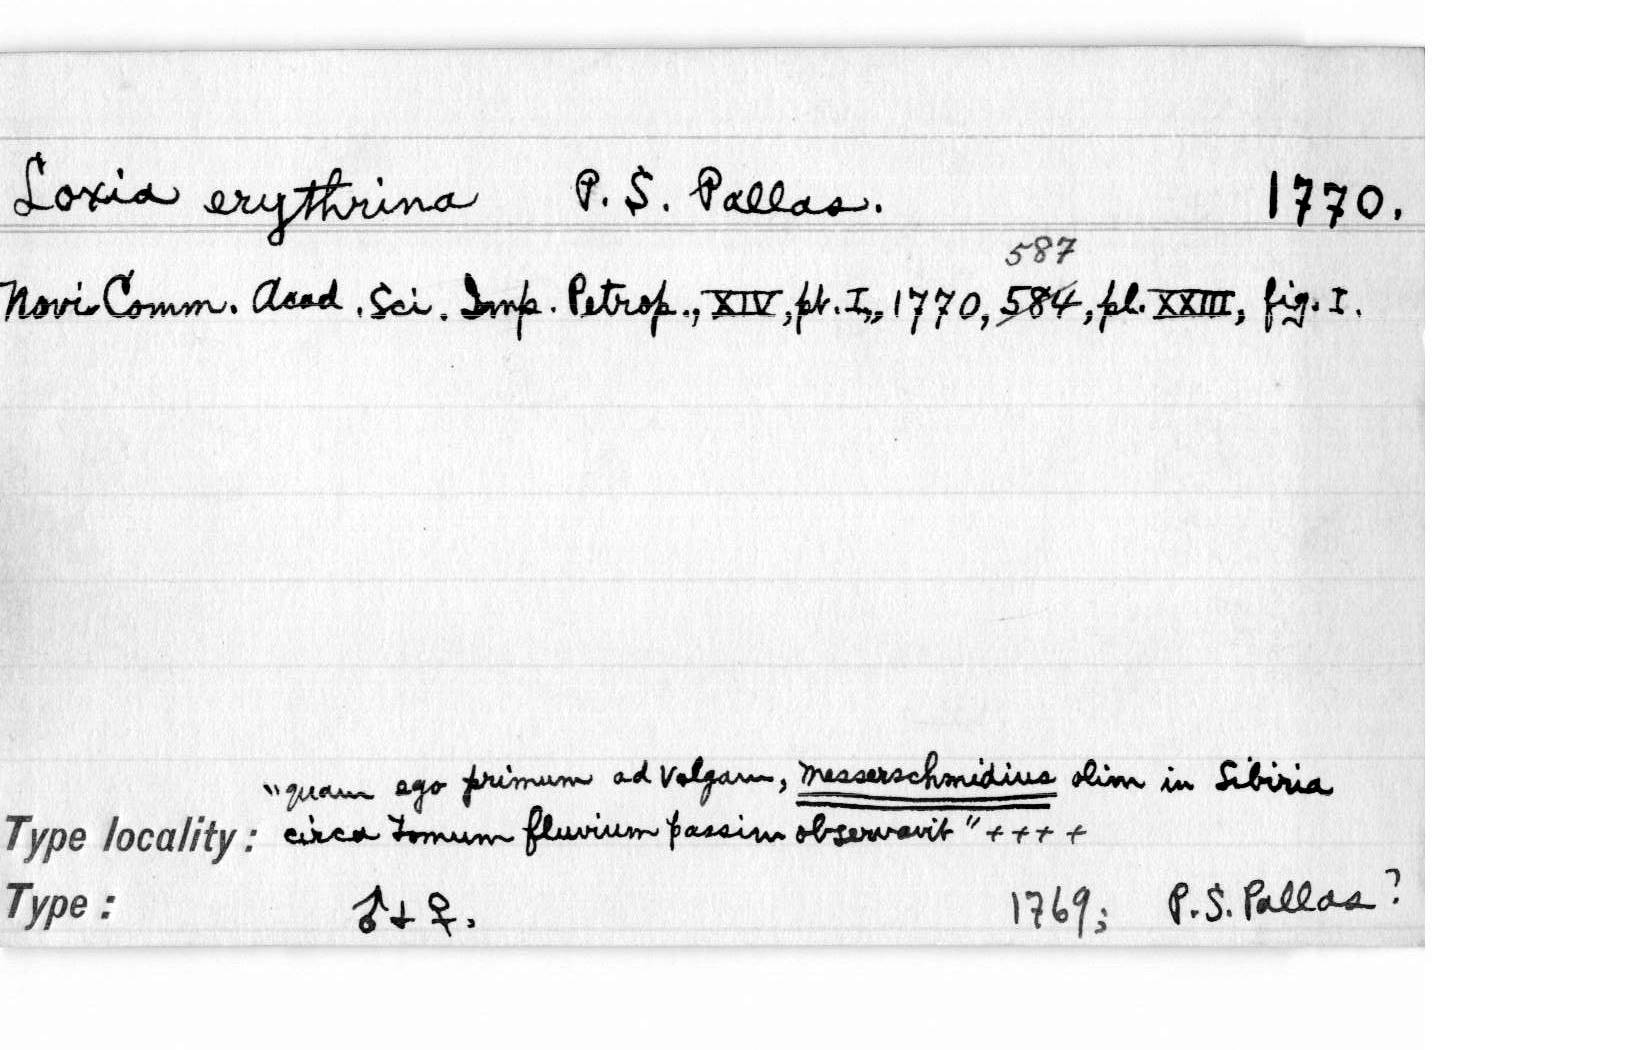 Loxia erythrina P. S. Pallas. 1770.
587
Novi Comm. Acad. Sci. Imp. Petrop., XIV, pt. I,, 1770, 584, pl. XXIII, fig. I.
"quam ego primum ad Volgam, Messerschmidius olim in Sibiria
Type locality: circa Tomum fluvium passim observavit" ++++
Type: ♂ + ♀. 1769; P. S. Pallas?